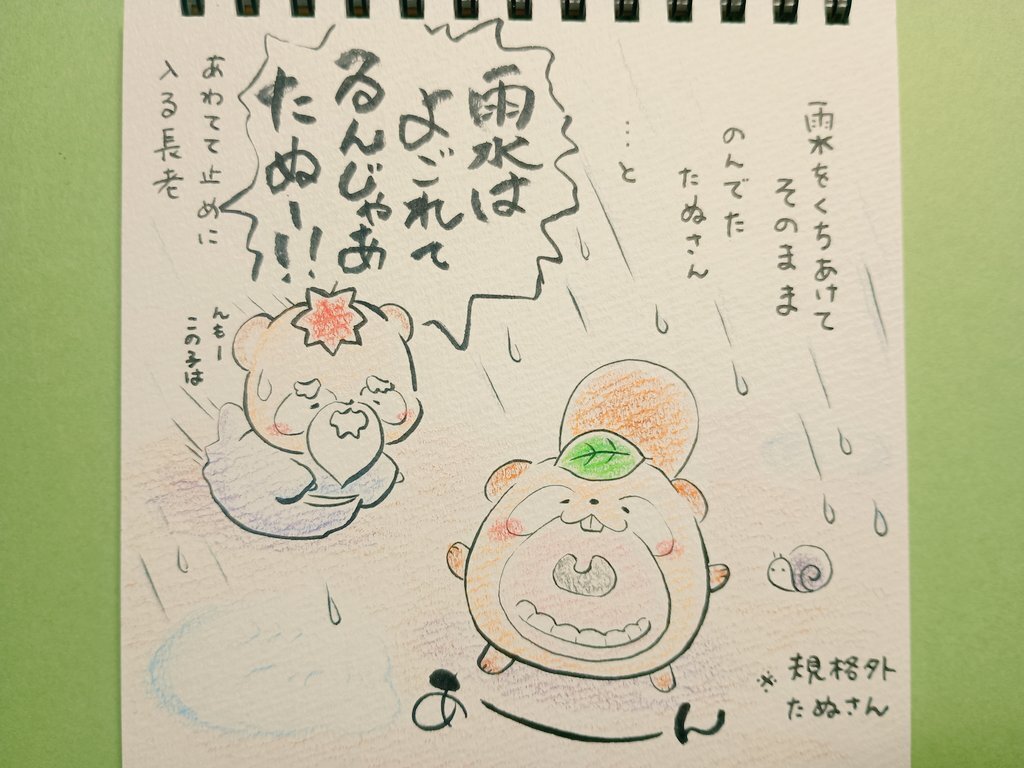 雨水をくちあけて
そのまま
のんでた
たぬさん
…と
雨水は
よごれて
るんじゃあ
たぬー!!
あわてて止めに
入る長老
んもー
この子は
あーん
※規格外
たぬさん